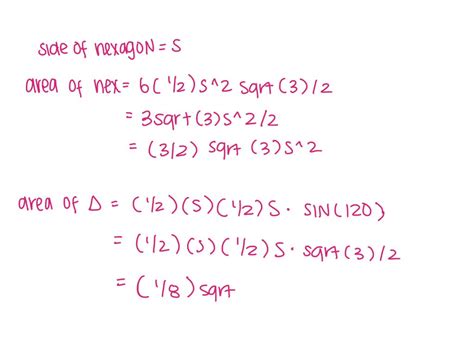 side of hexagon = s
area of hex = 6(1/2)s^2 sqrt(3)/2
= 3sqrt(3)s^2/2
= (3/2) sqrt(3)s^2
area of Δ = (1/2)(s)(1/2)s · sin(120)
= (1/2)(s)(1/2)s · sqrt(3)/2
= (1/8) sqrt